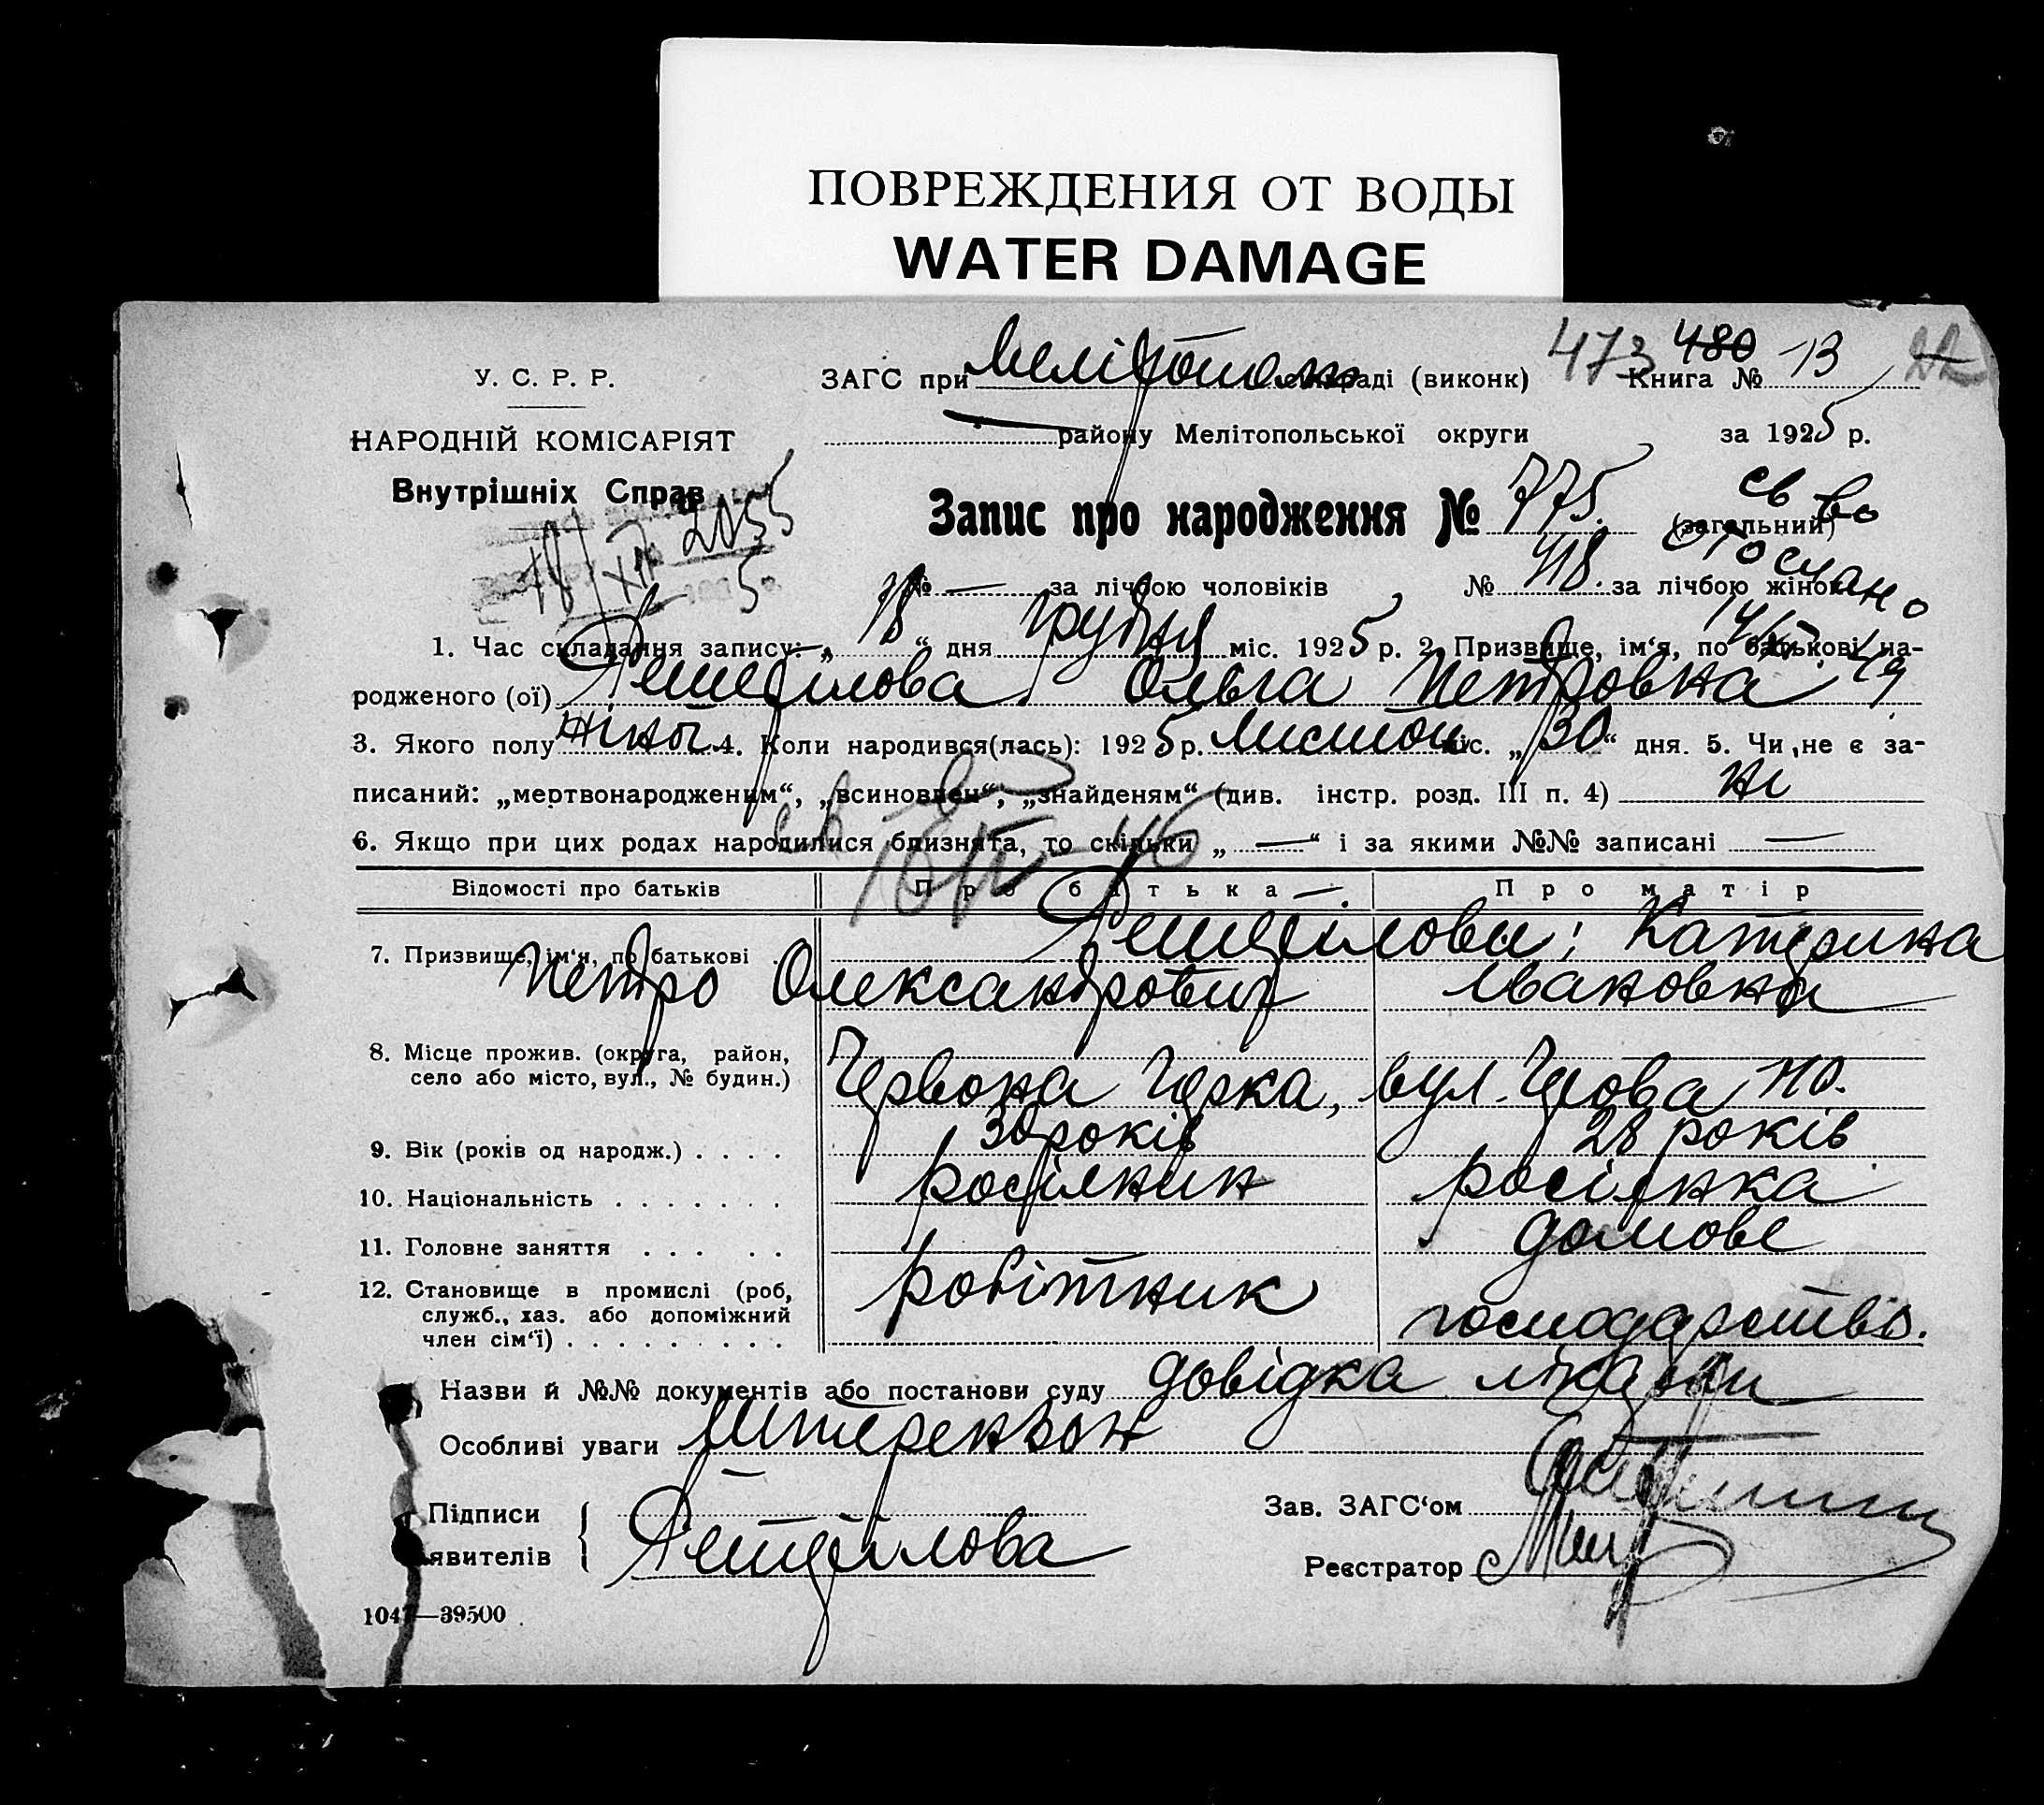 ПОВРЕЖДЕНИЯ ОТ ВОДЫ
WATER DAMAGE
473 480
У. С. Р. Р.
ЗАГС при Мелітополь раді (виконк) Книга № 13 22
району Мелітопольської округи за 1925 р.
НАРОДНІЙ КОМІСАРІЯТ
Внутрішніх Справ
2055
18/XII 5
Запис про народження № 775. (загальний)
св во
отослано
№ — за лічбою чоловіків № 418. за лічбою жінок
1. Час складання запису: „18“ дня грудня міс. 1925 р. 2. Призвище, ім‘я, по батькові на-
родженого (ої) Ольга Петровка 49
3. Якого полу жіноч. 4. Коли народився(лась): 1925 р. Листоп міс. „30“ дня. 5. Чи не є за-
писаний: „мертвонародженим“, „всиновлен“, „знайденям“ (див. інстр. розд. III п. 4) ні
6. Якщо при цих родах народилися близнята, то скільки „—“ і за якими №№ записані —
Відомості про батьків Про батька Про матір
7. Призвище, ім‘я, по батькові . Катерина
Петро Олександрович Івановна
8. Місце прожив. (округа, район,
село або місто, вул., № будин.) Червона Гірка, вул.
9. Вік (років од народж.) . . . . 30 років 28 років
10. Національність . . . . . . . росіянин росіянка
11. Головне заняття . . . . . домове
12. Становище в промислі (роб, робітник
служб., хаз. або допоміжний господарство.
член сім‘ї) . . . . . . . . .
Назви й №№ документів або постанови суду довідка лікарки
Особливі уваги Штерензон
Підписи
явителів
Зав. ЗАГС‘ом
Реєстратор
1047—39500